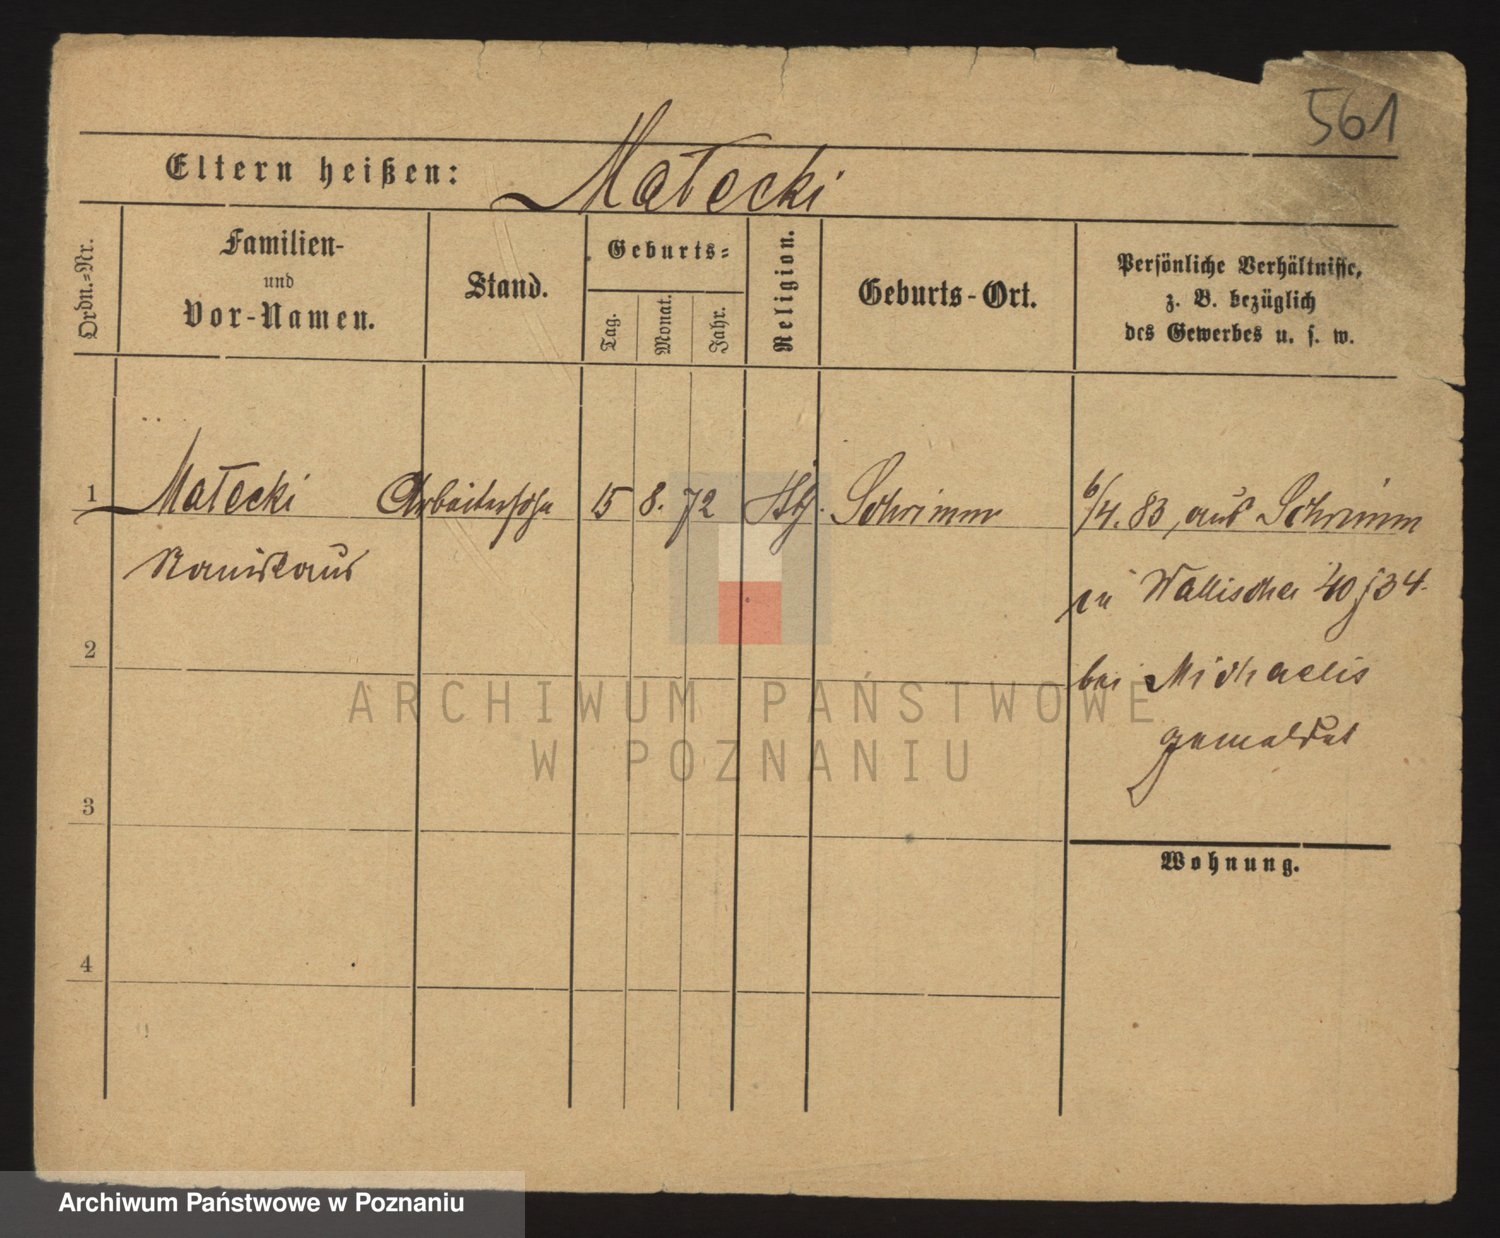 561
Eltern heißen: Małecki
Ordn.=Nr.
Familien-
und
Vor-Namen.
Stand.
Geburts=
Tag.
Monat.
Jahr.
Religion.
Geburts-Ort.
Persönliche Verhältnisse,
z. B. bezüglich
des Gewerbes u. s. w.
1 Małecki Arbeitersohn 15 8. 72 Kth. Schrimm 6/4. 83, aus Schrimm
Stanislaus
in Wallischei 40/34.
2
bei Michaelis
gemeldet
ARCHIWUM PAŃSTWOWE
W POZNANIU
3
Wohnung.
4
Archiwum Państwowe w Poznaniu